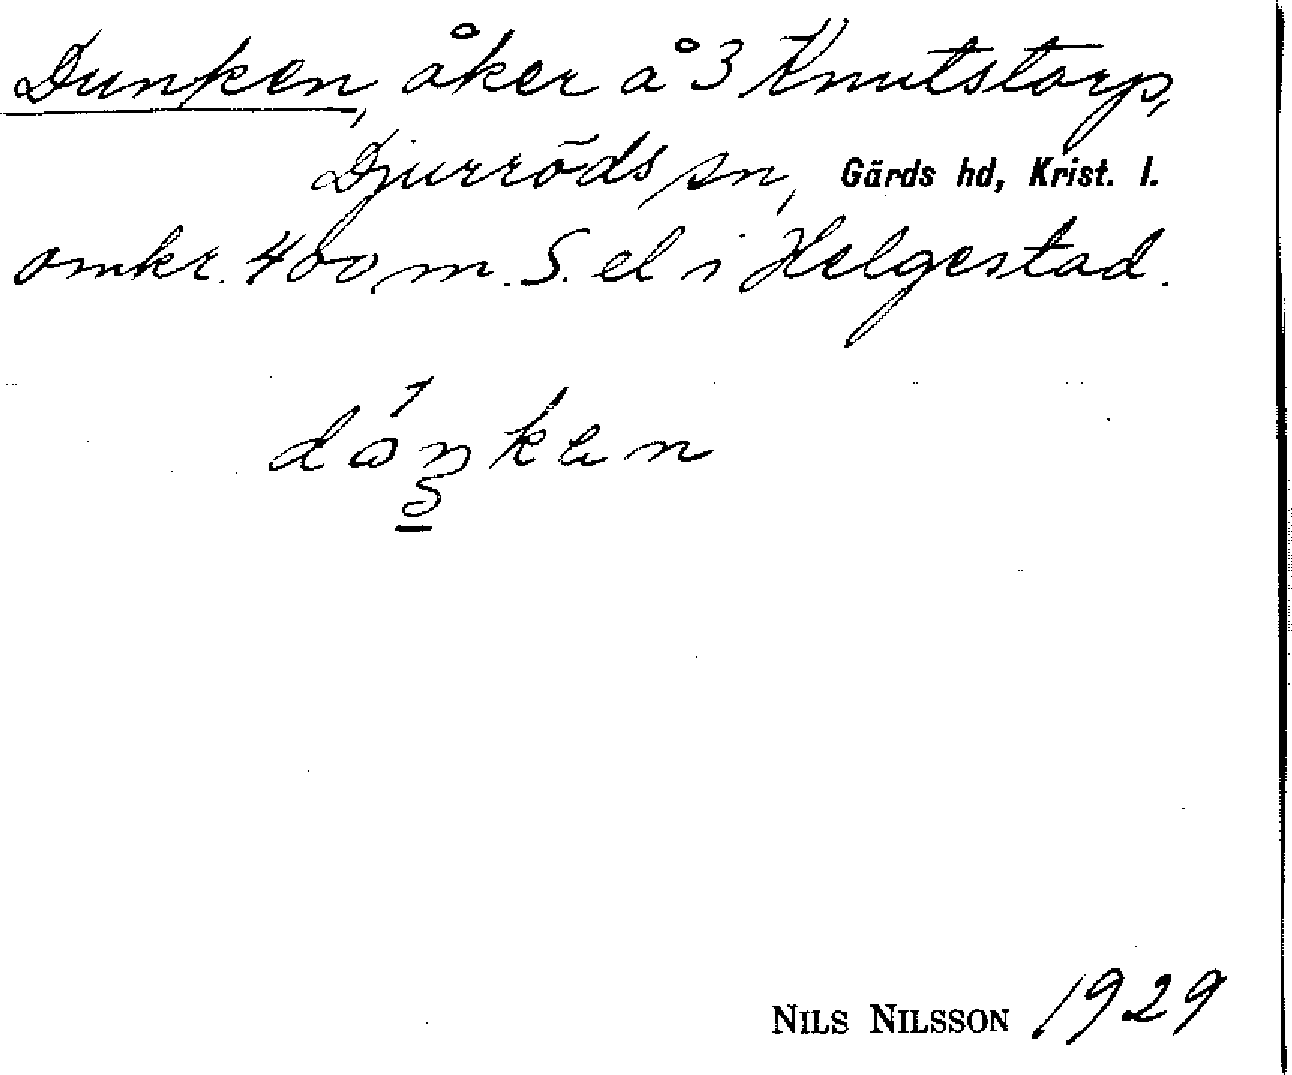 Dunken, åker å 3 Knutstorp,
Djurröds sn, Gärds hd, Krist. l.
omkr. 400 m. S. el i Helgestad.
NILS NILSSON 1929